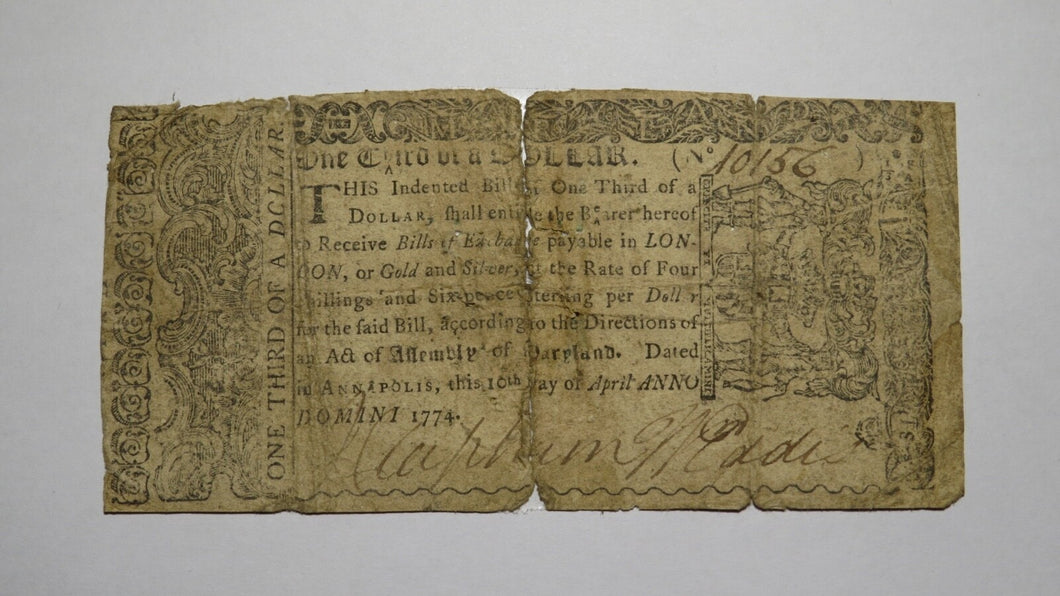 MARYLAND
One Third of a DOLLAR. (No 10156)
THIS Indented Bill of One Third of a
DOLLAR, ſhall entitle the Bearer hereof
to Receive Bills of Exchange payable in LON-
DON, or Gold and Silver, at the Rate of Four
Shillings and Six-pence Sterling per Dollar
for the ſaid Bill, according to the Directions of
an Act of Aſſembly of Maryland. Dated
in ANNAPOLIS, this 10th Day of April ANNO
DOMINI 1774.
J Clapham W Eddis
ONE THIRD OF A DOLLAR